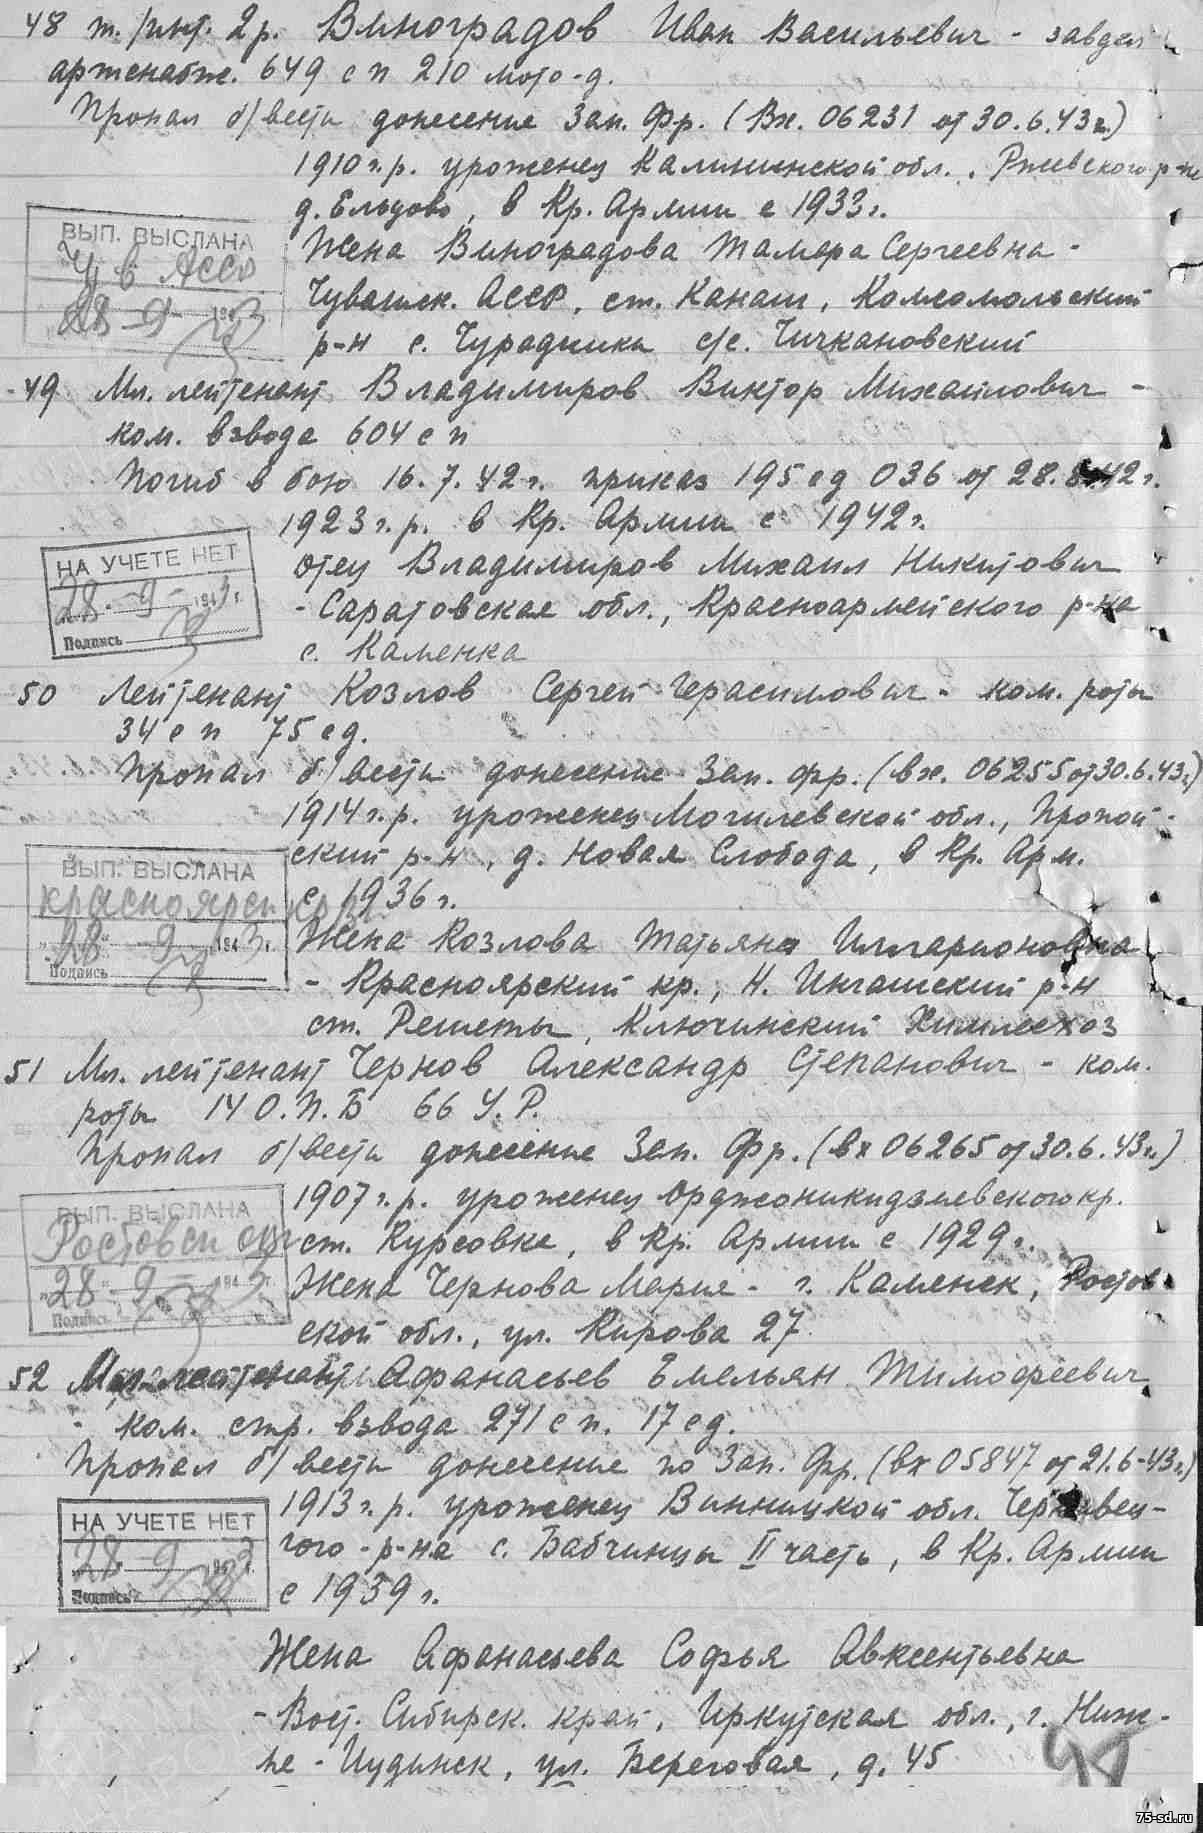 48 т./инт. 2 р. Виноградов Иван Васильевич - завдел
артснабж. 649 сп 210 мото-д.
Пропал б/вести донесение Зап. Фр. (Вх. 06231 от 30.6.43 г.)
1910 г.р. уроженец Калининской обл., Ржевского р-не
д. Ельцово, в Кр. Армии с 1933 г.
ВЫП. ВЫСЛАНА
Чув АССР
28 - 9 - 1943
Жена Виноградова Тамара Сергеевна -
Чувашск. АССР, ст. Канаш, Комсомольский
р-н с. Чурачики с/с. Чичкановский
49 Мл. лейтенант Владимиров Виктор Михайлович -
ком. взвода 604 сп
Погиб в бою 16.7.42 г. приказ 195 сд 036 от 28.8.42 г.
1923 г.р. в Кр. Армии с 1942 г.
НА УЧЕТЕ НЕТ
28 - 9 - 1943 г.
Подпись
отец Владимиров Михаил Никитович
- Саратовская обл., Красноармейского р-на
с. Каменка
50 Лейтенант Козлов Сергей Герасимович - ком. роты
34 сп 75 сд.
Пропал б/вести донесение Зап. фр. (вх. 06255 от 30.6.43 г.)
1914 г.р. уроженец Могилевской обл., Пропой-
ский р-н, д. Новая Слобода, в Кр. Арм.
с 1936 г.
ВЫП. ВЫСЛАНА
Красноярск кр
„28" - 9 - 1943 г.
Подпись
Жена Козлова Татьяна Илларионовна
- Красноярский кр., Н. Ингашский р-н
ст. Решеты, Ключинский Химлесхоз
51 Мл. лейтенант Чернов Александр Степанович - ком.
роты 14 О.П.Б 66 У.Р.
Пропал б/вести донесение Зап. Фр. (вх 06265 от 30.6.43 г.)
1907 г.р. уроженец Орджоникидзевского кр.
ст. Курсовка, в Кр. Армии с 1929 г.
ВЫП. ВЫСЛАНА
Ростовск обл
„28" - 9 - 1943 г.
Подпись
Жена Чернова Мария - г. Каменск, Ростов
ской обл., ул. Кирова 27
52 Мл. лейтенант Афанасьев Емельян Тимофеевич
- ком. стр. взвода 271 сп. 17 сд.
Пропал б/вести донесение по Зап. Фр. (вх 05847 от 21.6-43 г.)
1913 г.р. уроженец Винницкой обл. Чернивец-
гого - р-на с. Бабчинцы II часть, в Кр. Армии
с 1939 г.
НА УЧЕТЕ НЕТ
28 - 9 - 1943 г.
Подпись
Жена Афанасьева Софья Авксентьевна
- Вост. Сибирск. край, Иркутская обл., г. Ниж-
не - Иудинск, ул. Береговая, д. 45
75-sd.ru